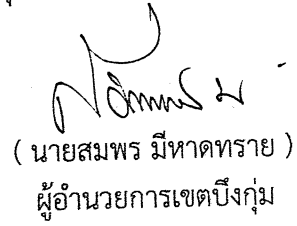 ( นายสมพร มีหาดทราย )
ผู้อำนวยการเขตบึงกุ่ม